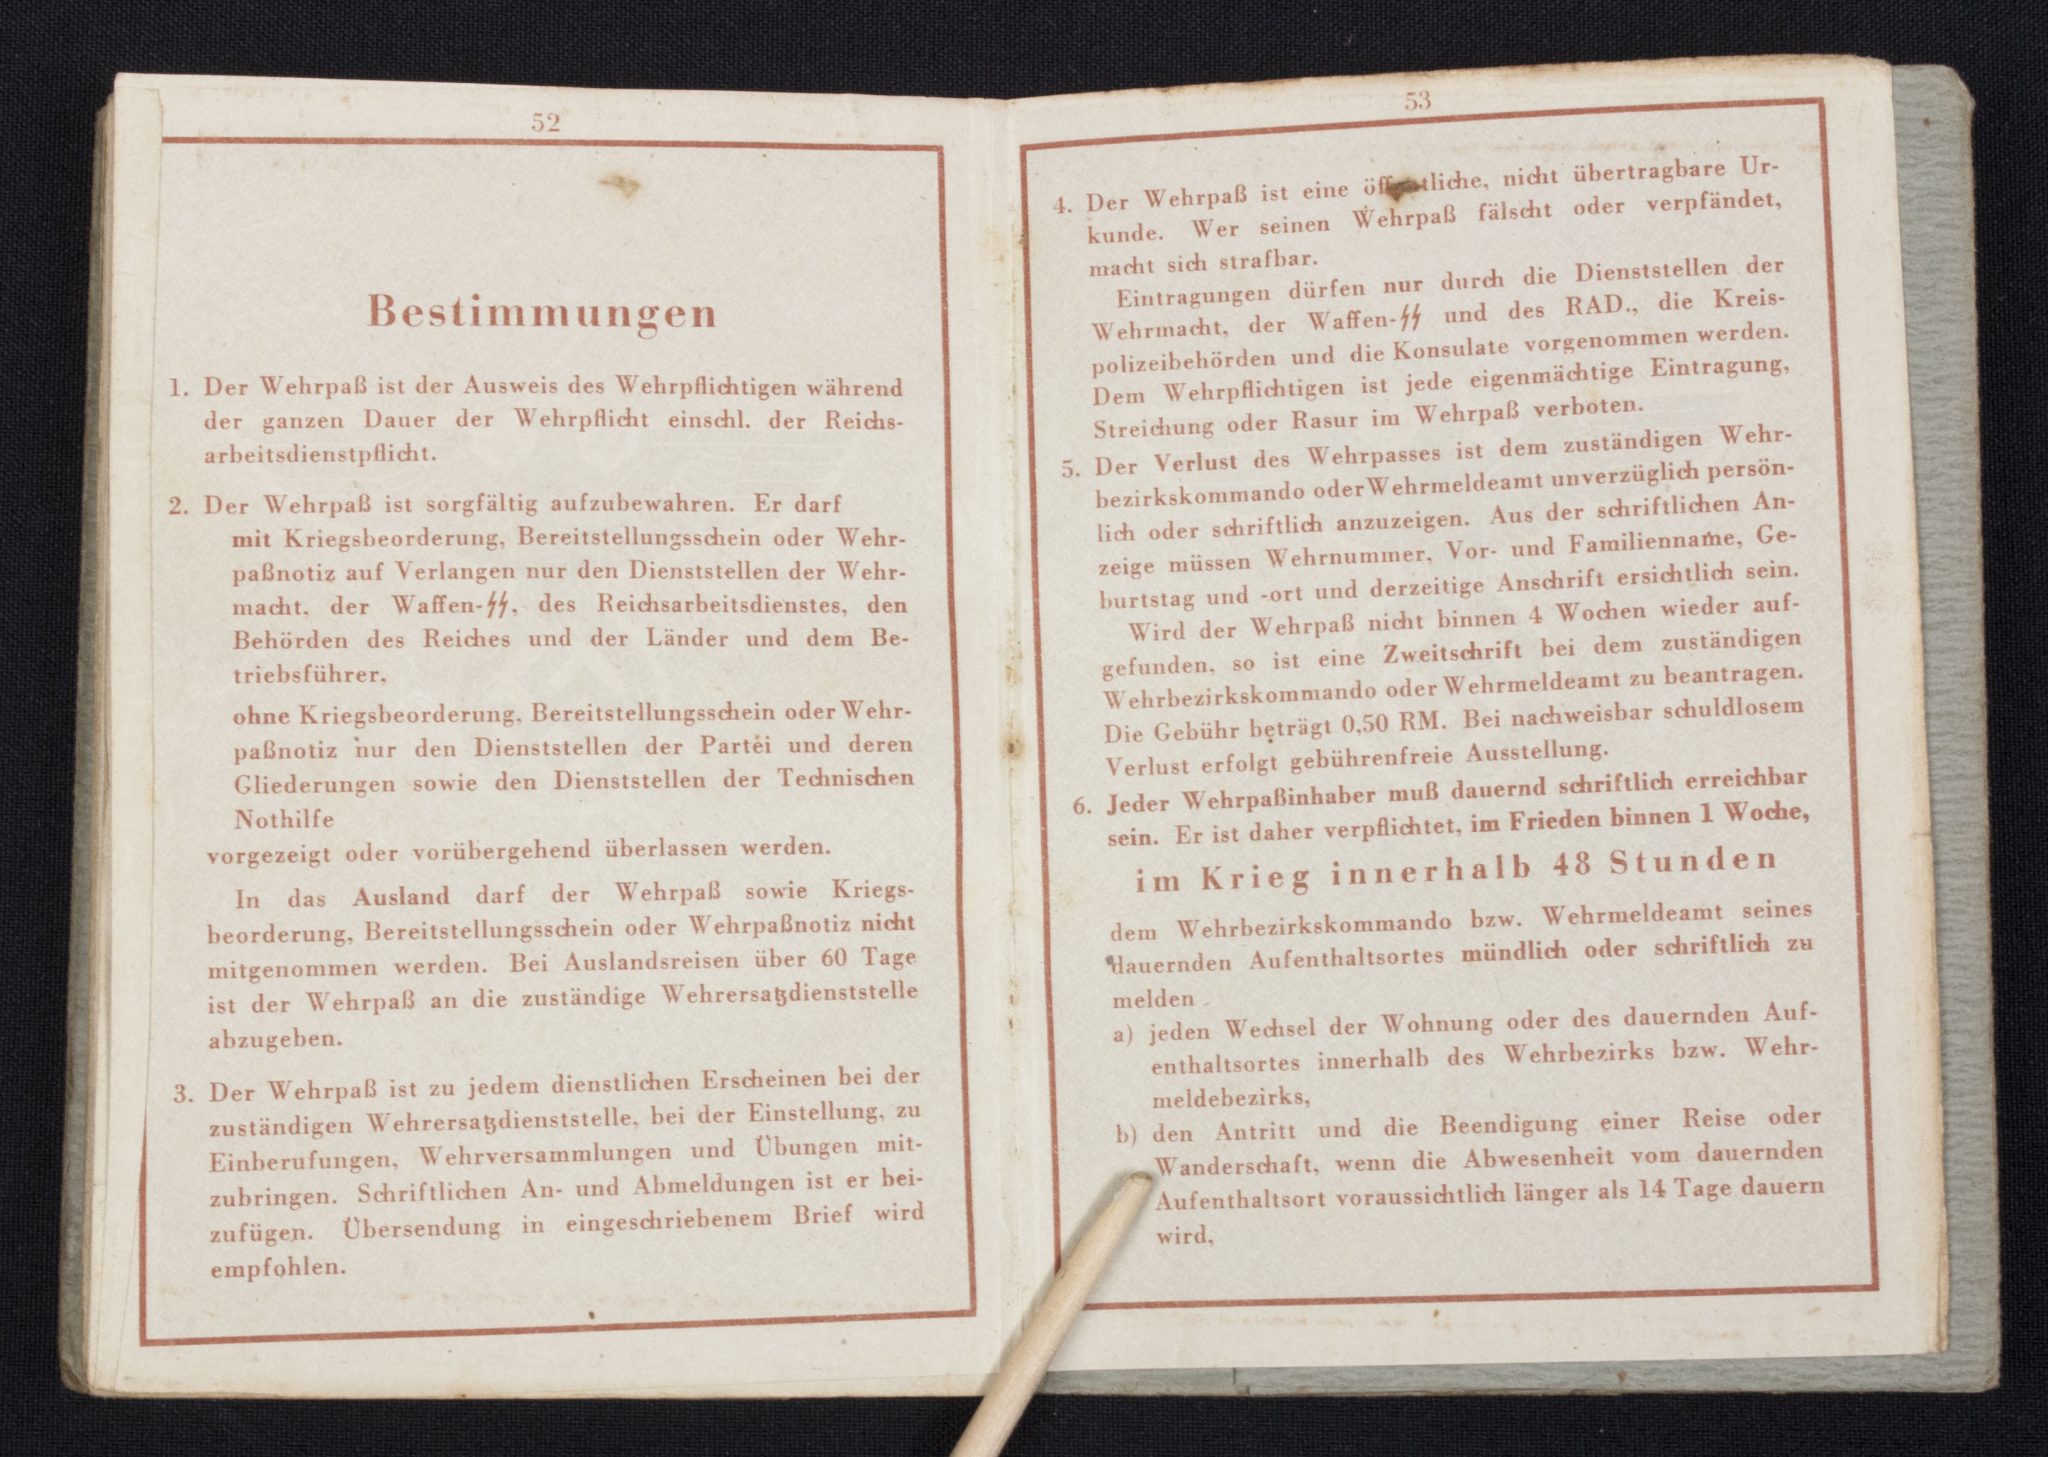 52
Bestimmungen
1. Der Wehrpaß ist der Ausweis des Wehrpflichtigen während
der ganzen Dauer der Wehrpflicht einschl. der Reichs-
arbeitsdienstpflicht.
2. Der Wehrpaß ist sorgfältig aufzubewahren. Er darf
mit Kriegsbeorderung, Bereitstellungsschein oder Wehr-
paßnotiz auf Verlangen nur den Dienststellen der Wehr-
macht, der Waffen-ᛋᛋ, des Reichsarbeitsdienstes, den
Behörden des Reiches und der Länder und dem Be-
triebsführer,
ohne Kriegsbeorderung, Bereitstellungsschein oder Wehr-
paßnotiz nur den Dienststellen der Partei und deren
Gliederungen sowie den Dienststellen der Technischen
Nothilfe
vorgezeigt oder vorübergehend überlassen werden.
In das Ausland darf der Wehrpaß sowie Kriegs-
beorderung, Bereitstellungsschein oder Wehrpaßnotiz nicht
mitgenommen werden. Bei Auslandsreisen über 60 Tage
ist der Wehrpaß an die zuständige Wehrersatzdienststelle
abzugeben.
3. Der Wehrpaß ist zu jedem dienstlichen Erscheinen bei der
zuständigen Wehrersatzdienststelle, bei der Einstellung, zu
Einberufungen, Wehrversammlungen und Übungen mit-
zubringen. Schriftlichen An- und Abmeldungen ist er bei-
zufügen. Übersendung in eingeschriebenem Brief wird
empfohlen.
53
4. Der Wehrpaß ist eine öffentliche, nicht übertragbare Ur-
kunde. Wer seinen Wehrpaß fälscht oder verpfändet,
macht sich strafbar.
Eintragungen dürfen nur durch die Dienststellen der
Wehrmacht, der Waffen-ᛋᛋ und des RAD., die Kreis-
polizeibehörden und die Konsulate vorgenommen werden.
Dem Wehrpflichtigen ist jede eigenmächtige Eintragung,
Streichung oder Rasur im Wehrpaß verboten.
5. Der Verlust des Wehrpasses ist dem zuständigen Wehr-
bezirkskommando oder Wehrmeldeamt unverzüglich persön-
lich oder schriftlich anzuzeigen. Aus der schriftlichen An-
zeige müssen Wehrnummer, Vor- und Familienname, Ge-
burtstag und -ort und derzeitige Anschrift ersichtlich sein.
Wird der Wehrpaß nicht binnen 4 Wochen wieder auf-
gefunden, so ist eine Zweitschrift bei dem zuständigen
Wehrbezirkskommando oder Wehrmeldeamt zu beantragen.
Die Gebühr beträgt 0,50 RM. Bei nachweisbar schuldlosem
Verlust erfolgt gebührenfreie Ausstellung.
6. Jeder Wehrpaßinhaber muß dauernd schriftlich erreichbar
sein. Er ist daher verpflichtet, im Frieden binnen 1 Woche,
im Krieg innerhalb 48 Stunden
dem Wehrbezirkskommando bzw. Wehrmeldeamt seines
dauernden Aufenthaltsortes mündlich oder schriftlich zu
melden
a) jeden Wechsel der Wohnung oder des dauernden Auf-
enthaltsortes innerhalb des Wehrbezirks bzw. Wehr-
meldebezirks,
b) den Antritt und die Beendigung einer Reise oder
Wanderschaft, wenn die Abwesenheit vom dauernden
Aufenthaltsort voraussichtlich länger als 14 Tage dauern
wird,